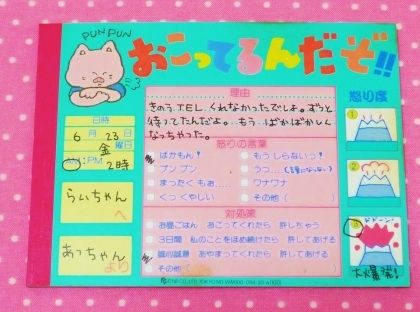 PUNPUN
おこってるんだぞ!!
日時
6月23日
金曜日
AM・PM 2時
らいちゃん
へ
あっちゃん
より
理由
きのうTELくれなかったでしょ。ずっと
待ってたんだよ。もうばかばかしく
なっちゃった。
怒りの言葉
ばかもん!
もうしらないっ!
プンプン
うっ…(言葉にならない)
まったくもぉ……
ワナワナ
くっくやしい
その他(
)
対処策
お昼ごはん おごってくれたら 許しちゃう
3日間 私のことをほめ続けたら 許してあげる
誠心誠意 あやまってくれたら 許してあげる
その他(
)
怒り度
1
2
3
ドドーン!
大火爆発!